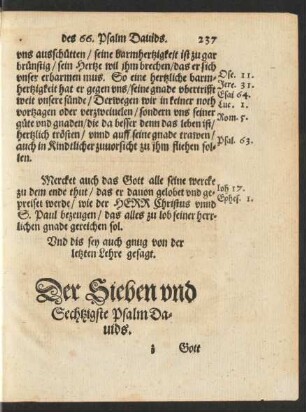 des 66. Psalm Dauids. 237
vns ausschütten / seine barmhertzigkeit ist zu gar
brünstig / sein Hertze wil jhm brechen / das er sich
vnser erbarmen mus. So eine hertzliche barm-
hertzigkeit hat er gegen vns / seine gnade vbertrifft
weit vnsere sünde / Derwegen wir in keiner noth
vortzagen oder verzweiueln / sondern vns seiner
güte vnd gnaden / die da besser denn das leben ist /
hertzlich trösten / vnnd auff seine gnade trawen /
auch in Kindtlicher zuuorsicht zu jhm fliehen sol-
len.
Ose. 11.
Jere. 31.
Esai 64.
Luc. 1.
Rom. 5.
Psal. 63.
Mercket auch das Gott alle seine wercke
zu dem ende thut / das er dauon gelobet vnd ge-
preiset werde / wie der HERR Christus vnnd
S. Paul bezeugen / das alles zu lob seiner herr-
lichen gnade gereichen sol.
Joh 17.
Ephes. 1.
Vnd dis sey auch gnug von der
letzten Lehre gesagt.
Der Sieben vnd
Sechtzigste Psalm Da-
uids.
Gott